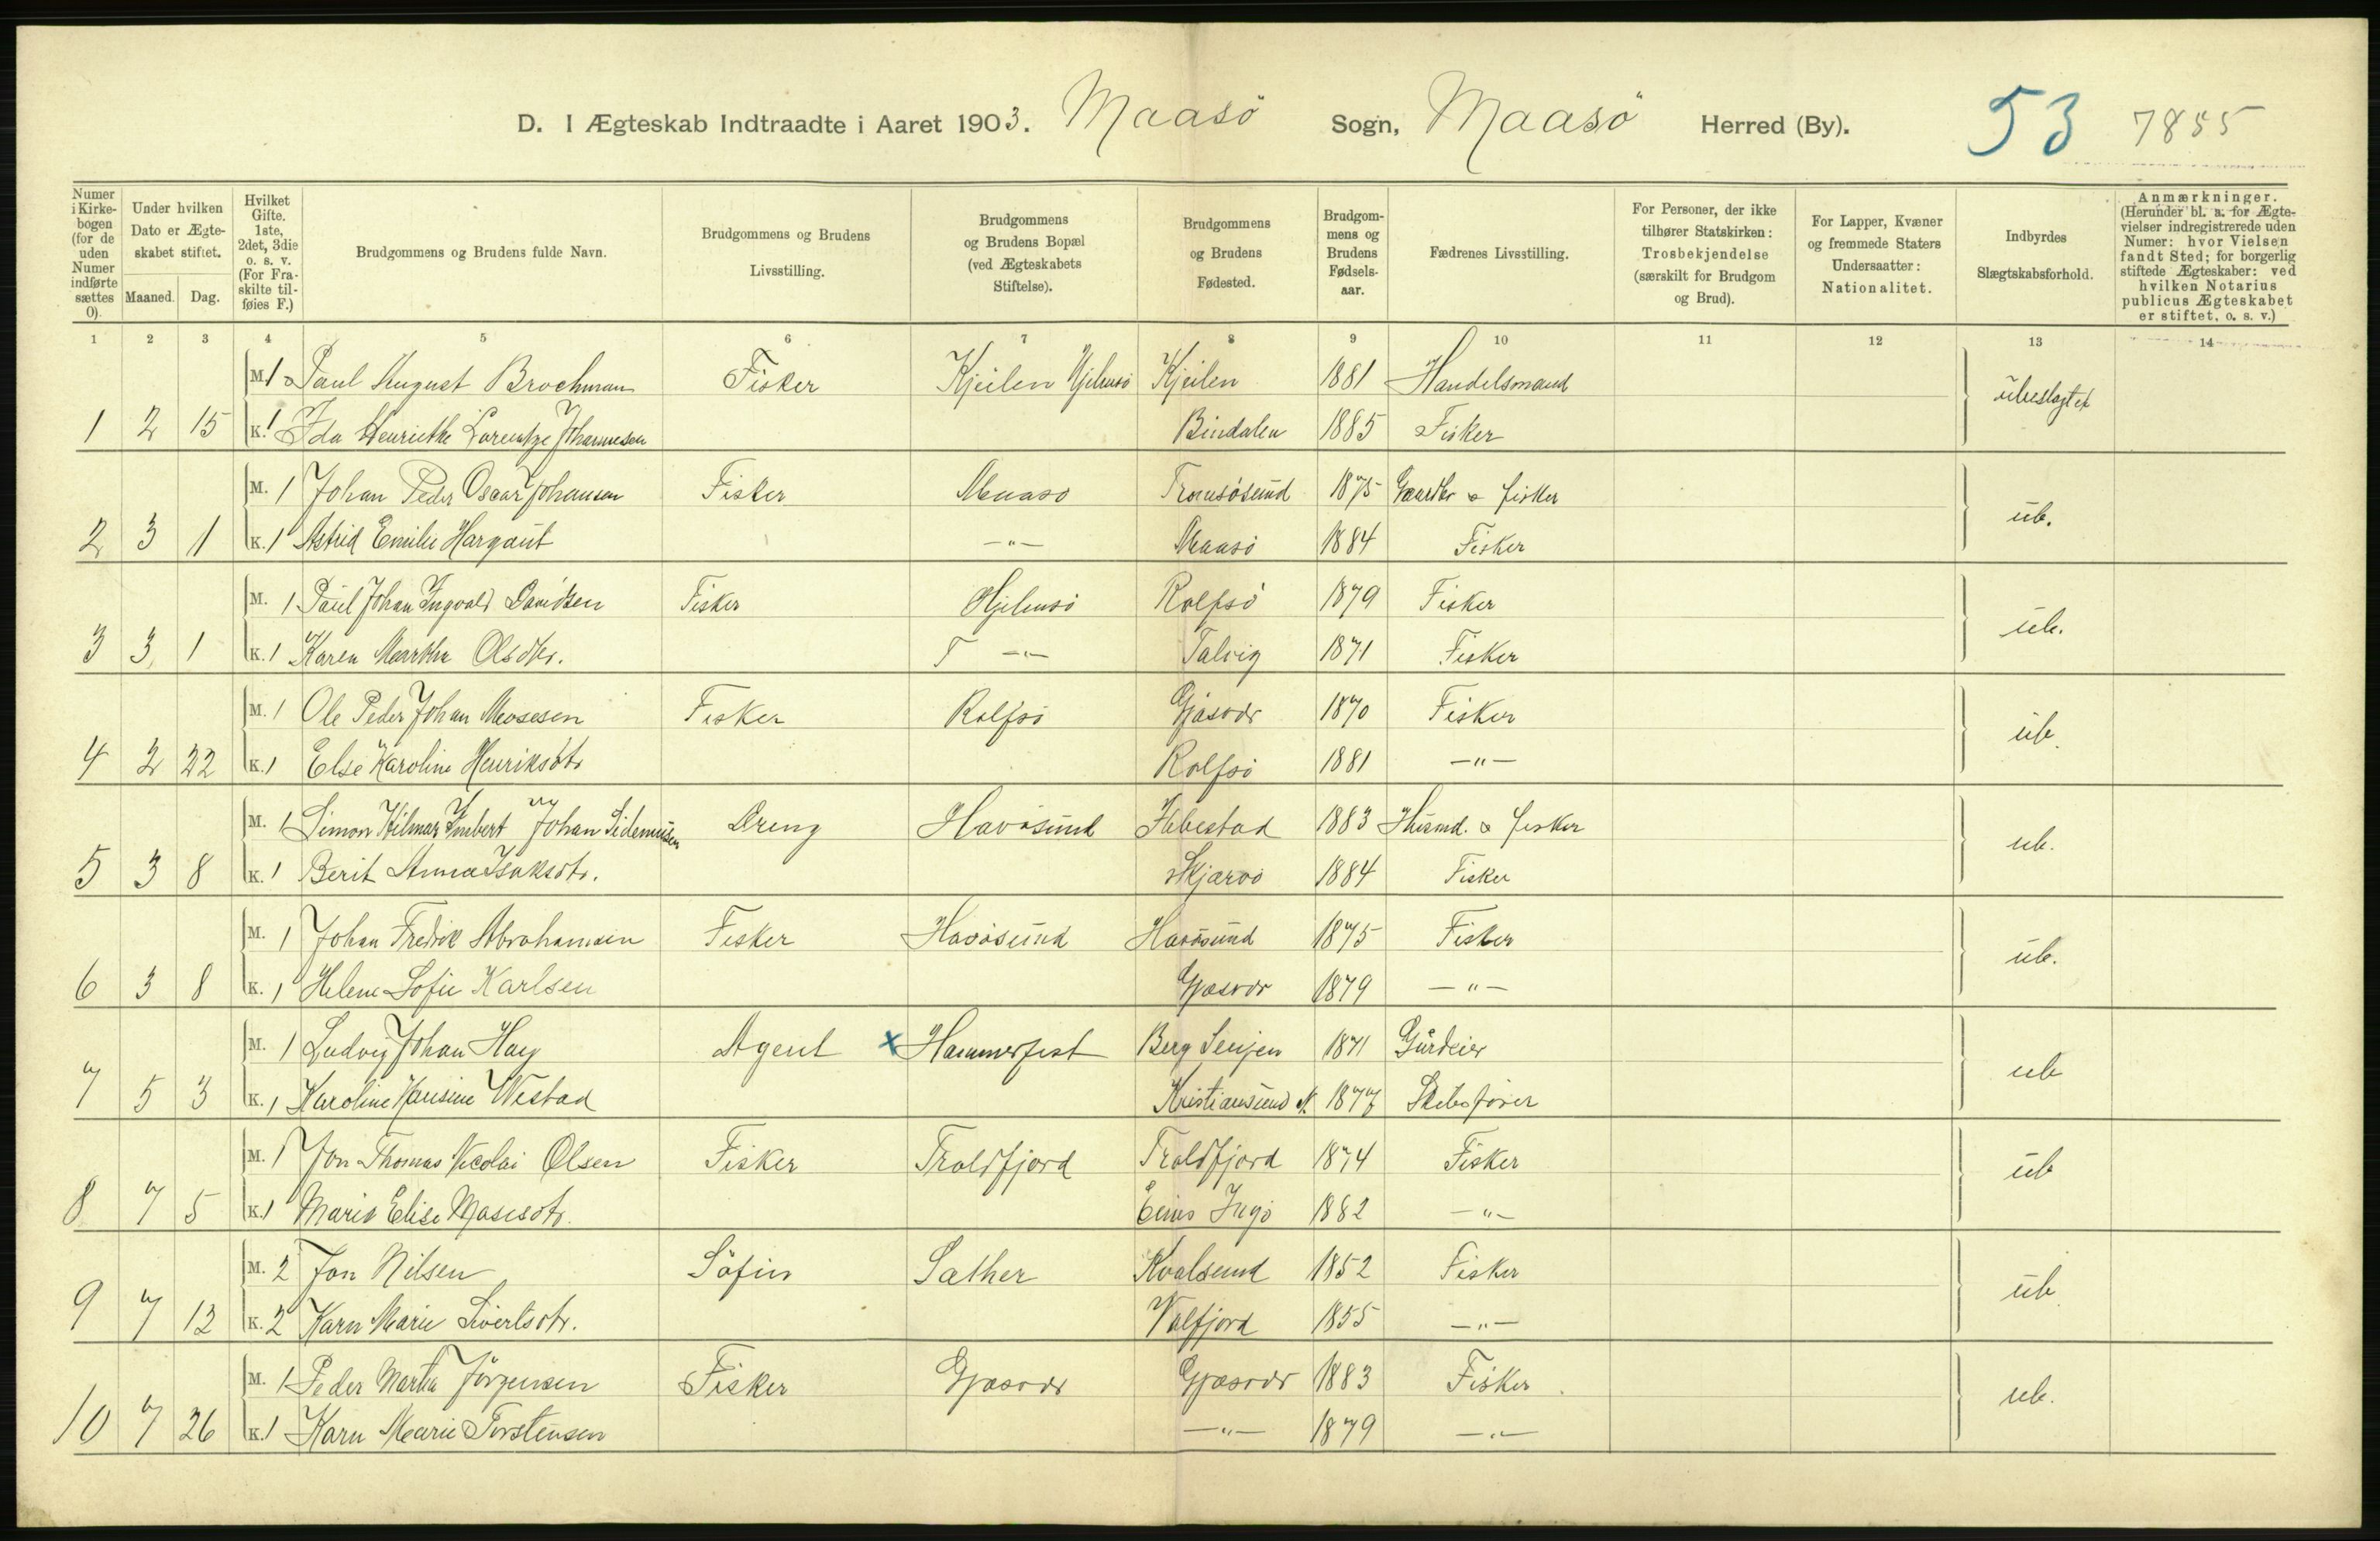 D. I Ægteskab Indtraadte i Aaret 1903. Maasö Sogn, Maasö Herred (By). 53 7855
Numer i Kirkebogen (for de uden Numer indførte sættes 0).
Under hvilken Dato er Ægteskabet stiftet.
Maaned. Dag.
Hvilket Gifte. 1ste, 2det, 3die o. s. v. (For Fraskilte tilføies F.)
Brudgommens og Brudens fulde Navn.
Brudgommens og Brudens Livsstilling.
Brudgommens og Brudens Bopæl (ved Ægteskabets Stiftelse).
Brudgommens og Brudens Fødested.
Brudgommens og Brudens Fødselsaar.
Fædrenes Livsstilling.
For Personer, der ikke tilhører Statskirken: Trosbekjendelse (særskilt for Brudgom og Brud).
For Lapper, Kvæner og fremmede Staters Undersaatter: Nationalitet.
Indbyrdes Slægtskabsforhold.
Anmærkninger. (Herunder bl. a. for Ægtevielser indregistrerede uden Numer: hvor Vielsen fandt Sted; for borgerlig stiftede Ægteskaber: ved hvilken Notarius publicus Ægteskabet er stiftet, o. s. v.)
1 2 3 4 5 6 7 8 9 10 11 12 13 14
M. 1 Paul August Brochman Fisker Kjeilen Hjelmsö Kjeilen 1881 Handelsmand ubeslagtet
1 2 15 K. 1 Ida Henriette Lorentze Johannesen Bindalen 1885 Fisker
M. 1 Johan Peder Oscar Johansen Fisker Maasö Tromsösund 1875 Gaardbr & fisker ub.
2 3 1 K. 1 Astrid Emilie Hargaut —"— Maasö 1884 Fisker
M. 1 Paul Johan Ingvald Davidsen Fisker Hjelmsö Rolfsö 1879 Fisker ub.
3 3 1 K. 1 Karen Martha Olsdtr. —"— Talvig 1871 Fisker
M. 1 Ole Peder Johan Mosesen Fisker Rolfsö Gjäsvär 1870 Fisker ub
4 2 22 K. 1 Else Karoline Henriksdtr Rolfsö 1881 —"—
M. 1 Simon Hilmar Imbert Johan Sideniusen Dreng Havösund Ibbestad 1883 Husmd. & fisker ub.
5 3 8 K. 1 Berit Anna Isaksdtr. Skjærvö 1884 Fisker
M. 1 Johan Fredrik Abrahamsen Fisker Havösund Havösund 1875 Fisker ub.
6 3 8 K. 1 Helene Sofie Karlsen Gjæsvær 1879 —"—
M. 1 Ludvig Johan Hay Agent x Hammerfest Berg Senjen 1871 Gårdeier ub
7 5 3 K. 1 Karoline Hansine Westad Kristiansund N. 1877 Skibsförer
M. 1 Jon Thomas Nicolai Olsen Fisker Troldfjord Troldfjord 1874 Fisker ub
8 7 5 K. 1 Maris Elise Masisdtr. Ingö 1882 —"—
M. 2 Jon Nilsen Söfin Sæther Kvalsund 1852 Fisker ub
9 7 12 K. 2 Karn Marie Sivertsdtr. Valfjord 1855 —"—
M. 1 Peder Martin Jörgensen Fisker Gjæsvær Gjæsvær 1883 Fisker ub.
10 7 26 K. 1 Karn Marie Torstensen —"— 1879 —"—